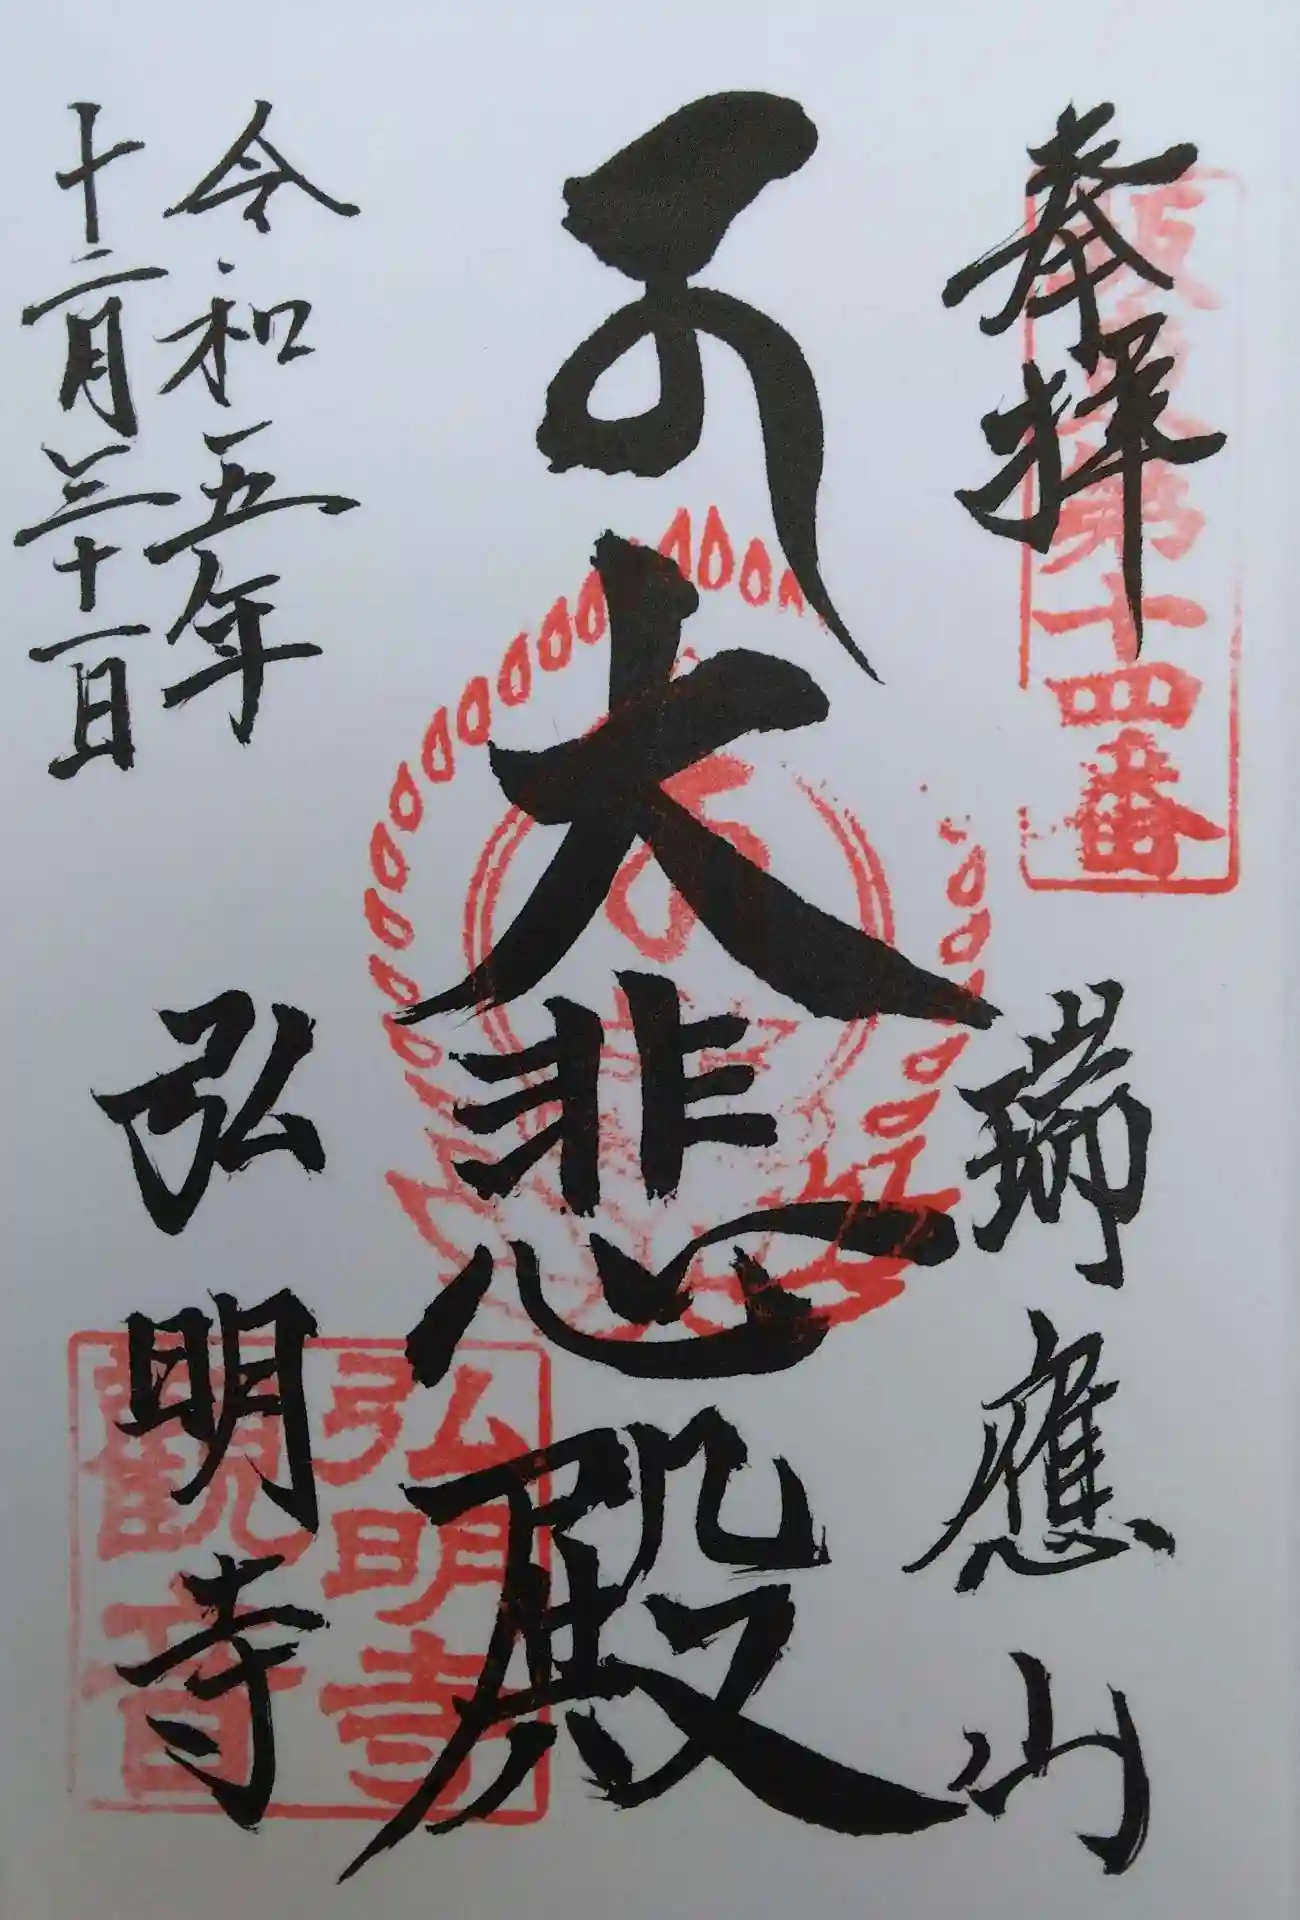 奉拝
坂東第十四番
瑞應山
大悲殿
弘明寺
弘明寺
観音
令和五年
十二月三十一日